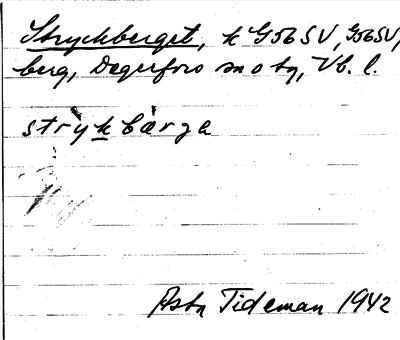 Stryckberget, k G56SV, G56SV,
berg, Degerfors sn o tg, Vb. l.
strỳkbæ̀rga
Asta Tideman 1942